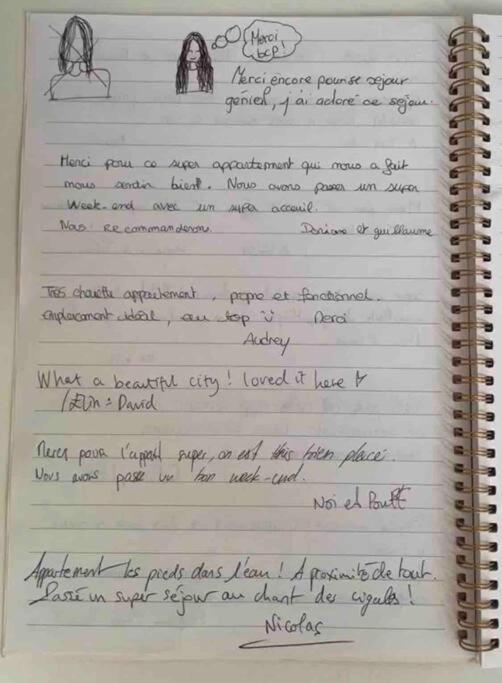 Merci
bcp!
Merci encore pour se sejour
génial, j'ai adoré ce sejour.
Merci pour ce super appartement qui nous a fait
nous sentir bien. Nous avons passer un super
Week-end avec un super acceuil.
Nous Recommanderons. Doriane et guillaume
Très chouette appartement, propre et fonctionnel.
emplacement idéal, au top Merci
Audrey
What a beautiful city! loved it here
Elin + David
Merci pour l'appart super, on est très bien placé.
Nous avons passé un bon week-end.
Appartement les pieds dans l'eau! A proximité de tout.
Passé un super séjour au chant des cigales!
Nicolas